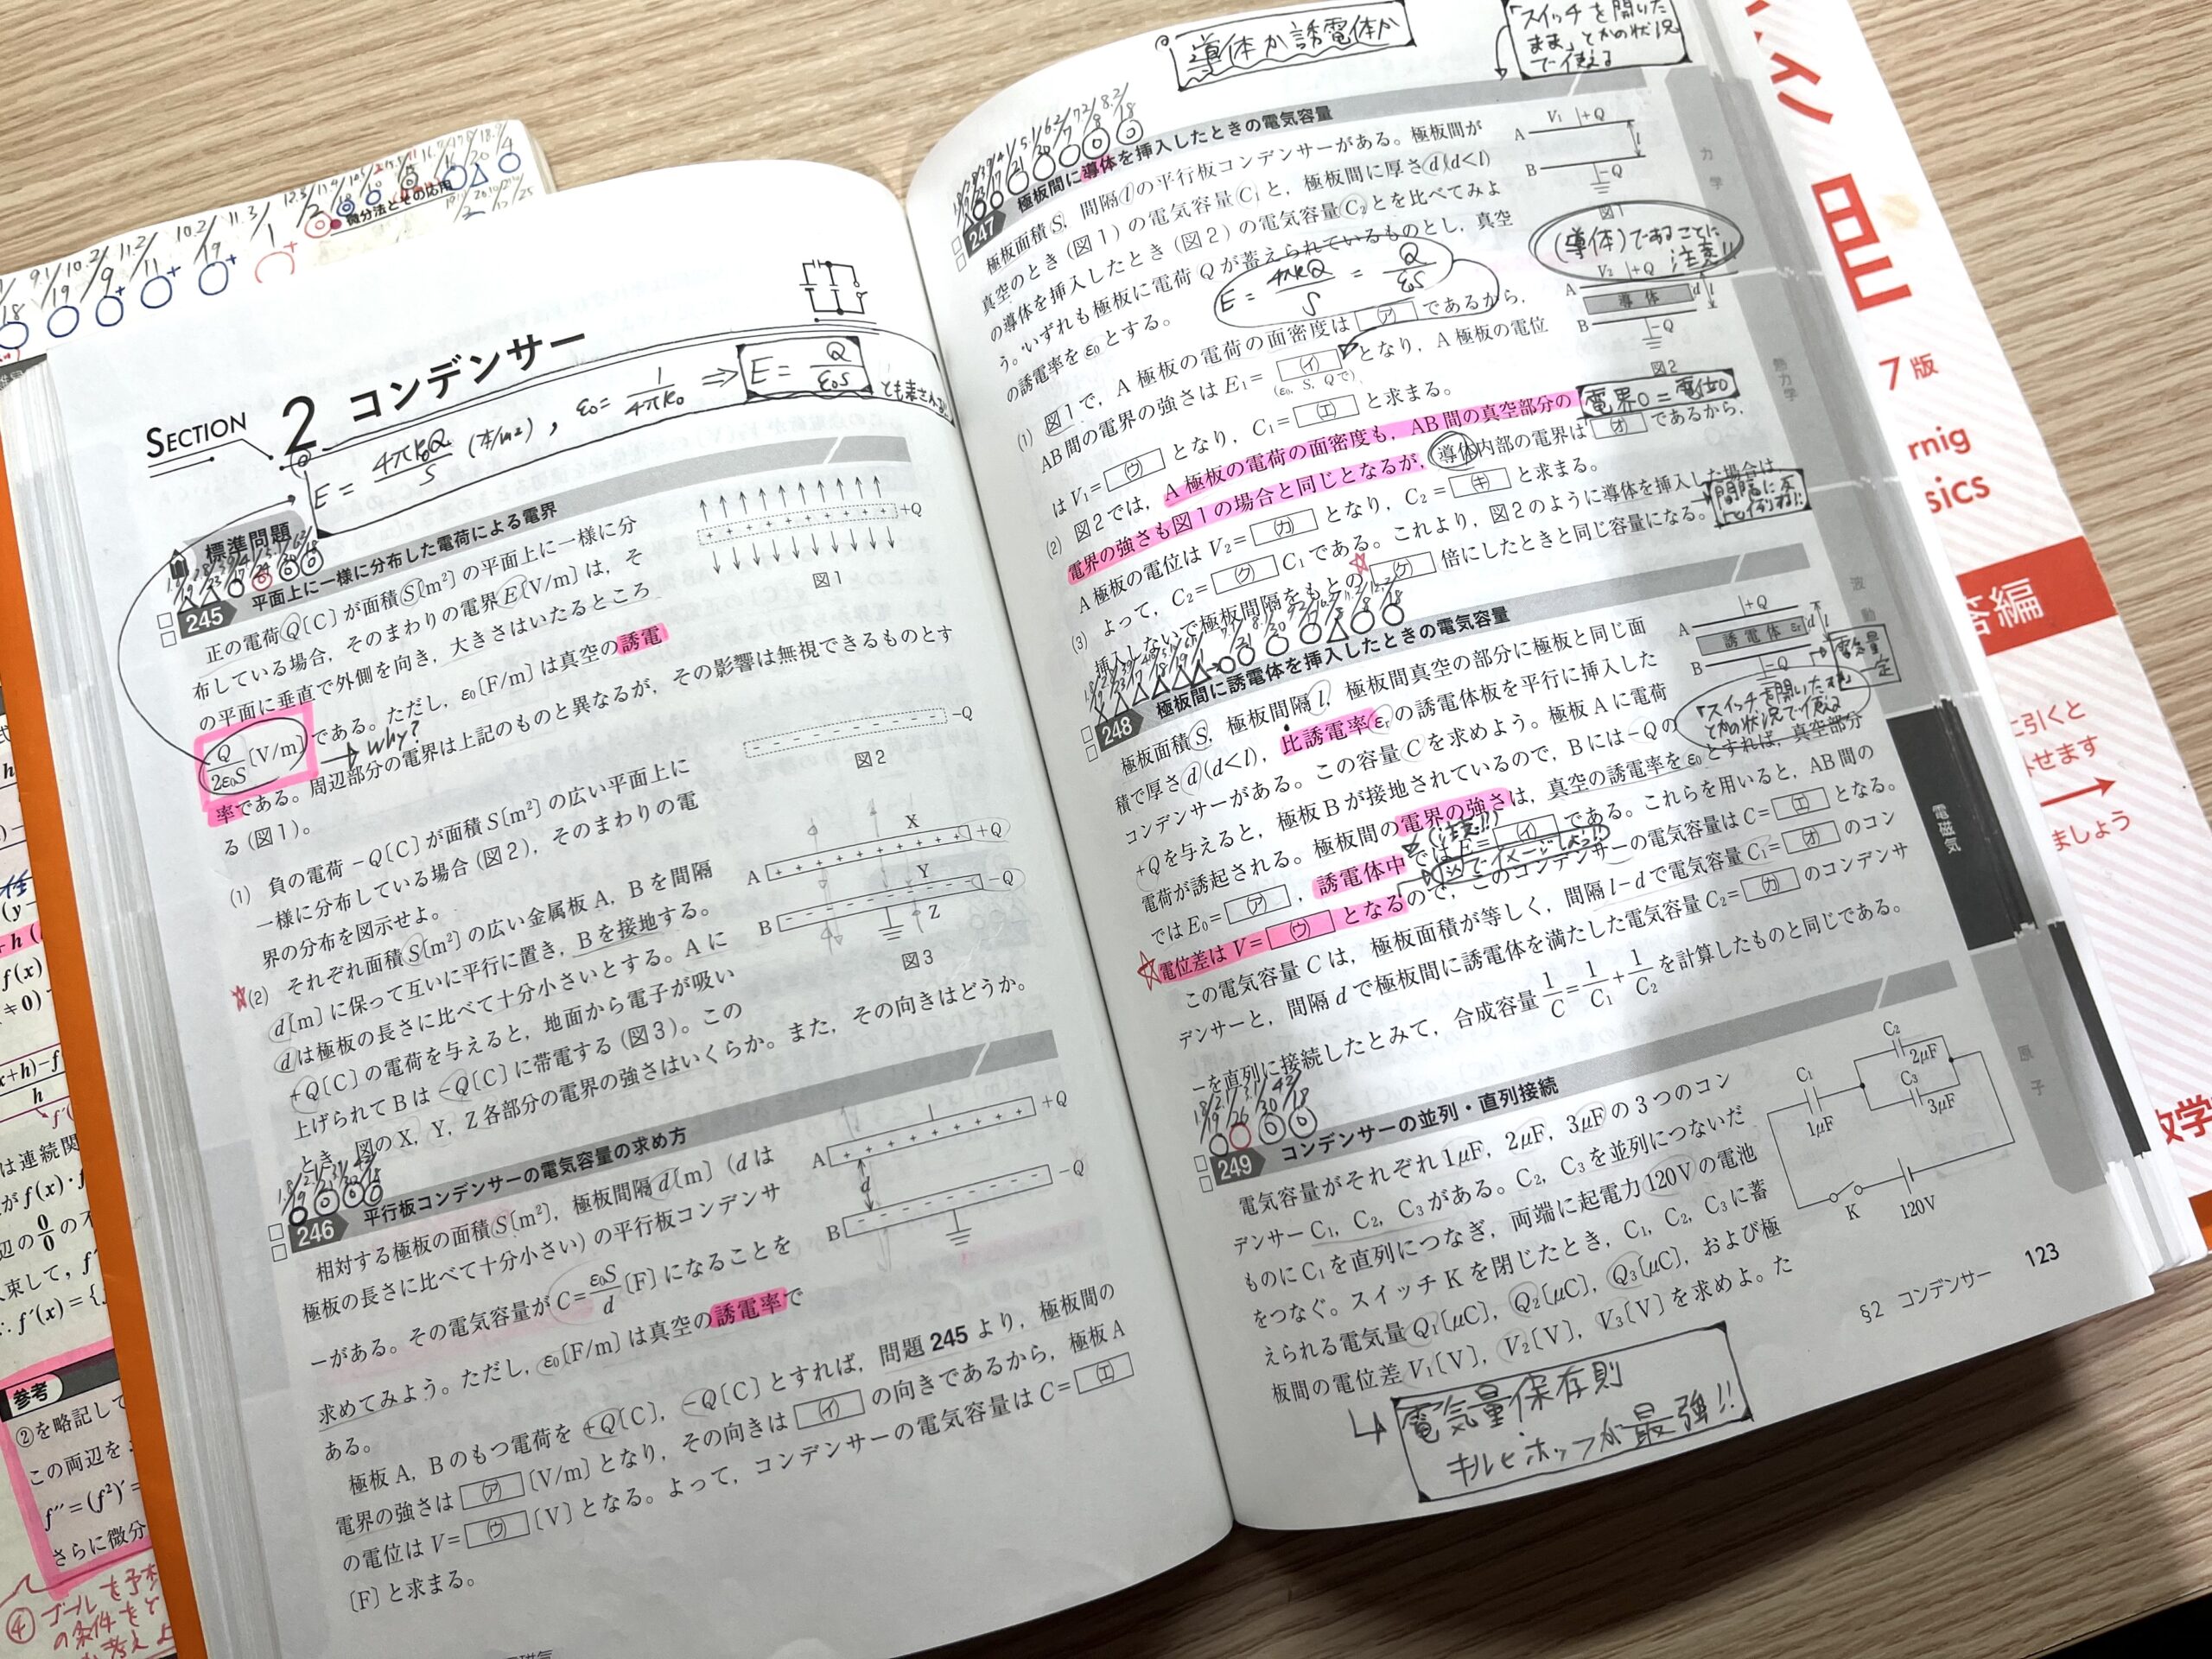 SECTION 2 コンデンサー
E = 4πk₀Q/S (本/m²), ε₀ = 1/4πk₀ ⇒ E = Q/ε₀S
標準問題
245 平面上に一様に分布した電荷による電界
正の電荷Q〔C〕が面積S〔m²〕の平面上に一様に分
布している場合，そのまわりの電界E〔V/m〕は，そ
の平面に垂直で外側を向き，大きさはいたるところ
Q/2ε₀S〔V/m〕である。ただし，ε₀〔F/m〕は真空の誘電
why?
率である。周辺部分の電界は上記のものと異なるが，その影響は無視できるものとす
る（図1）。
+Q
図1
(1) 負の電荷 −Q〔C〕が面積S〔m²〕の広い平面上に
一様に分布している場合（図2），そのまわりの電
界の分布を図示せよ。
−Q
図2
(2) それぞれ面積S〔m²〕の広い金属板A，Bを間隔
d〔m〕に保って互いに平行に置き，Bを接地する。
dは極板の長さに比べて十分小さいとする。Aに
+Q〔C〕の電荷を与えると，地面から電子が吸い
上げられてBは −Q〔C〕に帯電する（図3）。この
とき，図のX，Y，Z各部分の電界の強さはいくらか。また，その向きはどうか。
X
+Q
A
Y
−Q
B
Z
図3
246 平行板コンデンサーの電気容量の求め方
相対する極板の面積S〔m²〕，極板間隔d〔m〕（dは
極板の長さに比べて十分小さい）の平行板コンデンサ
ーがある。その電気容量が C=ε₀S/d〔F〕になることを
求めてみよう。ただし，ε₀〔F/m〕は真空の誘電率で
ある。
+Q
A
d
−Q
B
極板A，Bのもつ電荷を +Q〔C〕，−Q〔C〕とすれば，問題245より，極板間の
電界の強さは ㋐ 〔V/m〕となり，その向きは ㋑ の向きであるから，極板A
の電位は V= ㋒ 〔V〕となる。よって，コンデンサーの電気容量は C= ㋓
〔F〕と求まる。
導体か誘電体か
「スイッチを開いた
まま」とかの状況
で使える
247 極板間に導体を挿入したときの電気容量
極板面積S，間隔lの平行板コンデンサーがある。極板間が
真空のとき（図1）の電気容量C₁と，極板間に厚さd(d<l)
の導体を挿入したとき（図2）の電気容量C₂とを比べてみよ
う。いずれも極板に電荷Qが蓄えられているものとし，真空
の誘電率をε₀とする。
E = 4πkQ/S = Q/ε₀S
V₁ +Q
A
l
B
−Q
図1
(導体)であることに
注意!!
V₂ +Q
A
導体 d l
B
−Q
図2
(1) 図1で，A極板の電荷の面密度は ㋐ であるから，
AB間の電界の強さは E₁= ㋑ となり，A極板の電位
(ε₀, S, Qで)
は V₁= ㋒ となり，C₁= ㋓ と求まる。
(2) 図2では，A極板の電荷の面密度も，AB間の真空部分の
電界0 = 電位0
電界の強さも図1の場合と同じとなるが，導体内部の電界は ㋔ であるから，
A極板の電位は V₂= ㋕ となり，C₂= ㋖ と求まる。
(3) よって，C₂= ㋗ C₁である。これより，図2のように導体を挿入した場合は，
挿入しないで極板間隔をもとの ㋘ 倍にしたときと同じ容量になる。
248 極板間に誘電体を挿入したときの電気容量
極板面積S，極板間隔l，極板間真空の部分に極板と同じ面
積で厚さd(d<l)，比誘電率εrの誘電体板を平行に挿入した
コンデンサーがある。この容量Cを求めよう。極板Aに電荷
+Qを与えると，極板Bが接地されているので，Bには−Qの
電荷が誘起される。極板間の電界の強さは，真空の誘電率をε₀とすれば，真空部分
では E₀= ㋐ ，誘電体中では E= ㋑ である。これらを用いると，AB間の
電位差は V= ㋒ となるので，このコンデンサーの電気容量は C= ㋓ となる。
(注意!!)
図でイメージしよう!!
+Q
A
誘電体 εr d l
B
−Q
電気量
一定
「スイッチを開いたまま」
とかの状況で使える
この電気容量Cは，極板面積が等しく，間隔 l−d で電気容量 C₁= ㋔ のコン
デンサーと，間隔dで極板間に誘電体を満たした電気容量 C₂= ㋕ のコンデンサ
ーを直列に接続したとみて，合成容量 1/C=1/C₁+1/C₂ を計算したものと同じである。
249 コンデンサーの並列・直列接続
電気容量がそれぞれ1μF，2μF，3μFの3つのコン
デンサー C₁，C₂，C₃がある。C₂，C₃を並列につないだ
ものにC₁を直列につなぎ，両端に起電力120Vの電池
をつなぐ。スイッチKを閉じたとき，C₁，C₂，C₃に蓄
えられる電気量Q₁〔μC〕，Q₂〔μC〕，Q₃〔μC〕，および極
板間の電位差V₁〔V〕，V₂〔V〕，V₃〔V〕を求めよ。
C₂
2μF
C₁
C₃
1μF
3μF
K
120V
電気量保存則
キルヒホッフが最強!!
§2 コンデンサー 123
力学
熱力学
波動
電磁気
原子
微分法とその応用
参考
②を略記して
この両辺を
f″=(f²)′=
さらに微分
7版
rnig
sics
答編
に引くと
せます
ましょう
数学